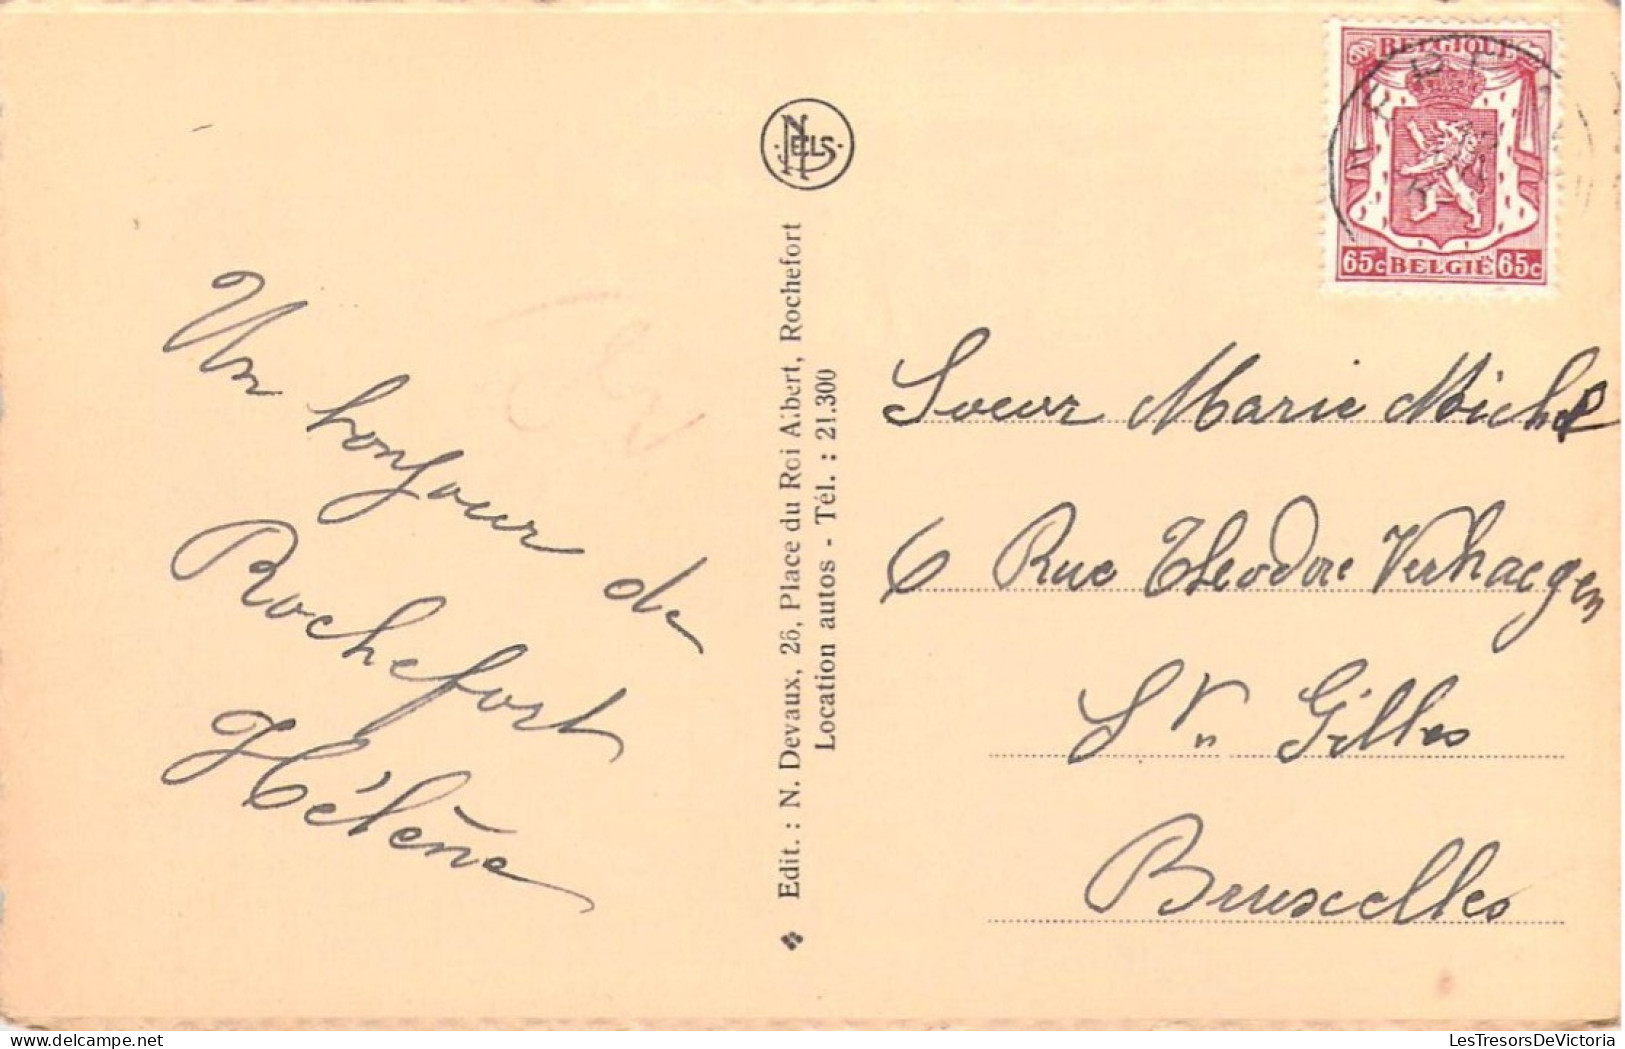 Un bonjour de
Rochefort
Hélène
NELS
Edit. : N. Devaux, 26, Place du Roi Albert, Rochefort
Location autos - Tél. : 21.300
BELGIQUE
65c BELGIË 65c
Soeur Marie Michel
6 Rue Théodore Verhaegen
St Gilles
Bruxelles
LesTresorsDeVictoria